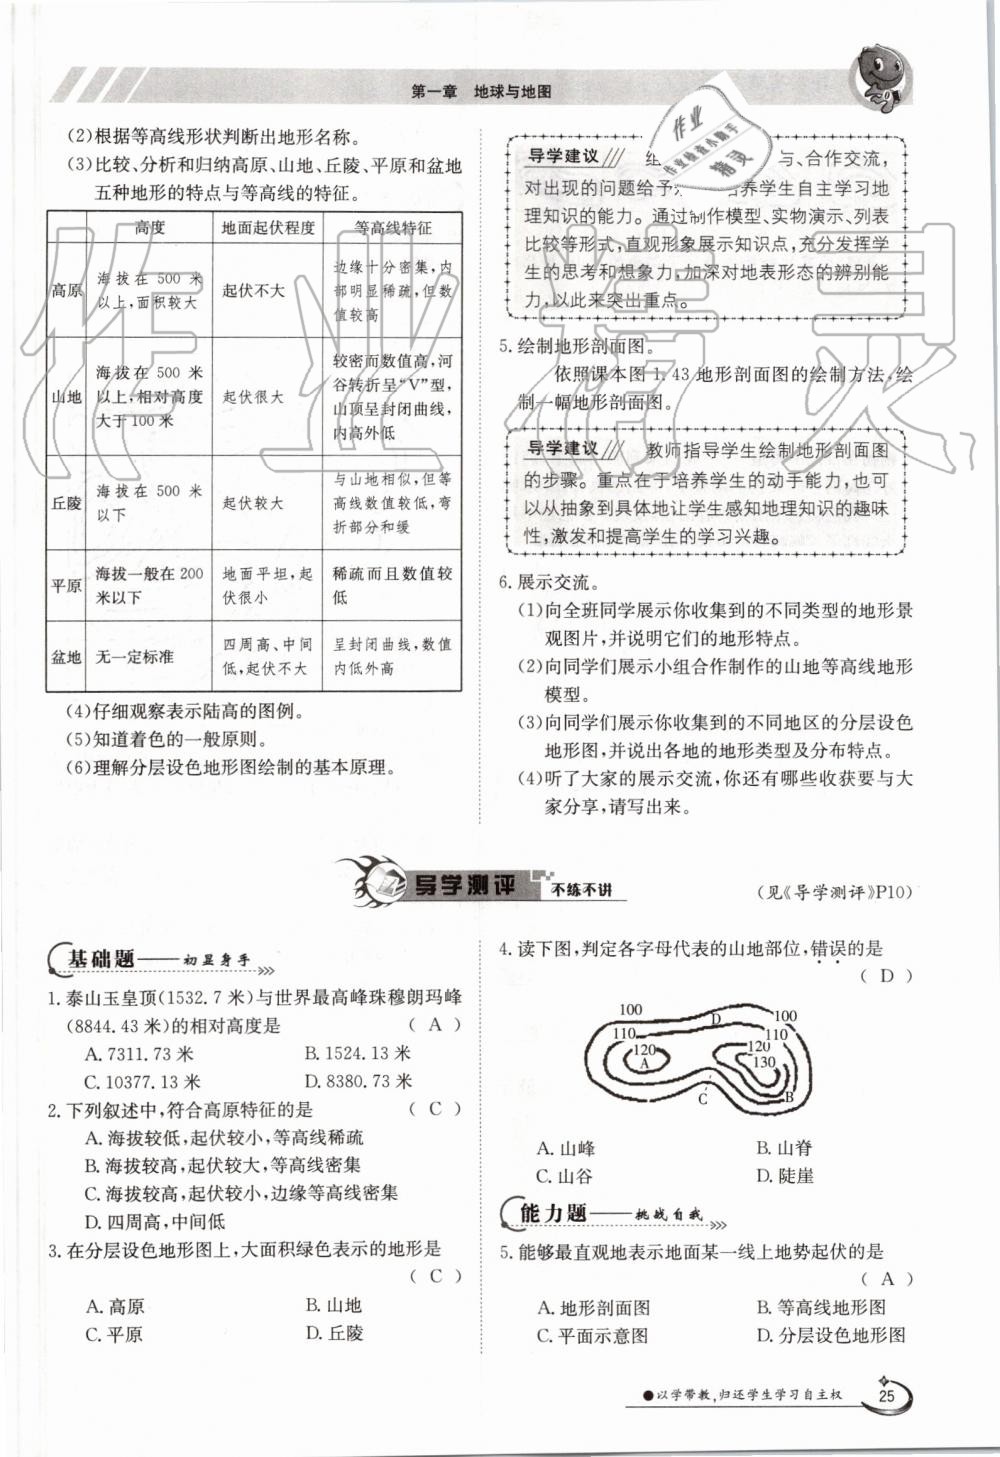 第一章 地球与地图
(2)根据等高线形状判断出地形名称。
(3)比较、分析和归纳高原、山地、丘陵、平原和盆地
五种地形的特点与等高线的特征。
高度 地面起伏程度 等高线特征
高原 海拔在500米以上,面积较大 起伏不大 边缘十分密集,内部明显稀疏,但数值较高
山地 海拔在500米以上,相对高度大于100米 起伏很大 较密而数值高,河谷转折呈“V”型,山顶呈封闭曲线,内高外低
丘陵 海拔在500米以下 起伏较大 与山地相似,但等高线数值较低,弯折部分和缓
平原 海拔一般在200米以下 地面平坦,起伏很小 稀疏而且数值较低
盆地 无一定标准 四周高、中间低,起伏不大 呈封闭曲线,数值内低外高
(4)仔细观察表示陆高的图例。
(5)知道着色的一般原则。
(6)理解分层设色地形图绘制的基本原理。
导学建议 组 与、合作交流,
对出现的问题给予 养学生自主学习地
理知识的能力。通过制作模型、实物演示、列表
比较等形式,直观形象展示知识点,充分发挥学
生的思考和想象力,加深对地表形态的辨别能
力,以此来突出重点。
5.绘制地形剖面图。
依照课本图1.43地形剖面图的绘制方法,绘
制一幅地形剖面图。
导学建议 教师指导学生绘制地形剖面图
的步骤。重点在于培养学生的动手能力,也可
以从抽象到具体地让学生感知地理知识的趣味
性,激发和提高学生的学习兴趣。
6.展示交流。
(1)向全班同学展示你收集到的不同类型的地形景
观图片,并说明它们的地形特点。
(2)向同学们展示小组合作制作的山地等高线地形
模型。
(3)向同学们展示你收集到的不同地区的分层设色
地形图,并说出各地的地形类型及分布特点。
(4)听了大家的展示交流,你还有哪些收获要与大
家分享,请写出来。
导学测评 不练不讲
(见《导学测评》P10)
基础题——初显身手
1.泰山玉皇顶(1532.7米)与世界最高峰珠穆朗玛峰
(8844.43米)的相对高度是 ( A )
A.7311.73米 B.1524.13米
C.10377.13米 D.8380.73米
2.下列叙述中,符合高原特征的是 ( C )
A.海拔较低,起伏较小,等高线稀疏
B.海拔较高,起伏较大,等高线密集
C.海拔较高,起伏较小,边缘等高线密集
D.四周高,中间低
3.在分层设色地形图上,大面积绿色表示的地形是
( C )
A.高原 B.山地
C.平原 D.丘陵
4.读下图,判定各字母代表的山地部位,错误的是
( D )
100 D 100
110 110
120 120
A 130
C B
A.山峰 B.山脊
C.山谷 D.陡崖
能力题——挑战自我
5.能够最直观地表示地面某一线上地势起伏的是
( A )
A.地形剖面图 B.等高线地形图
C.平面示意图 D.分层设色地形图
●以学带教,归还学生学习自主权 25
作业精灵
作业
作业检查小助手
精灵